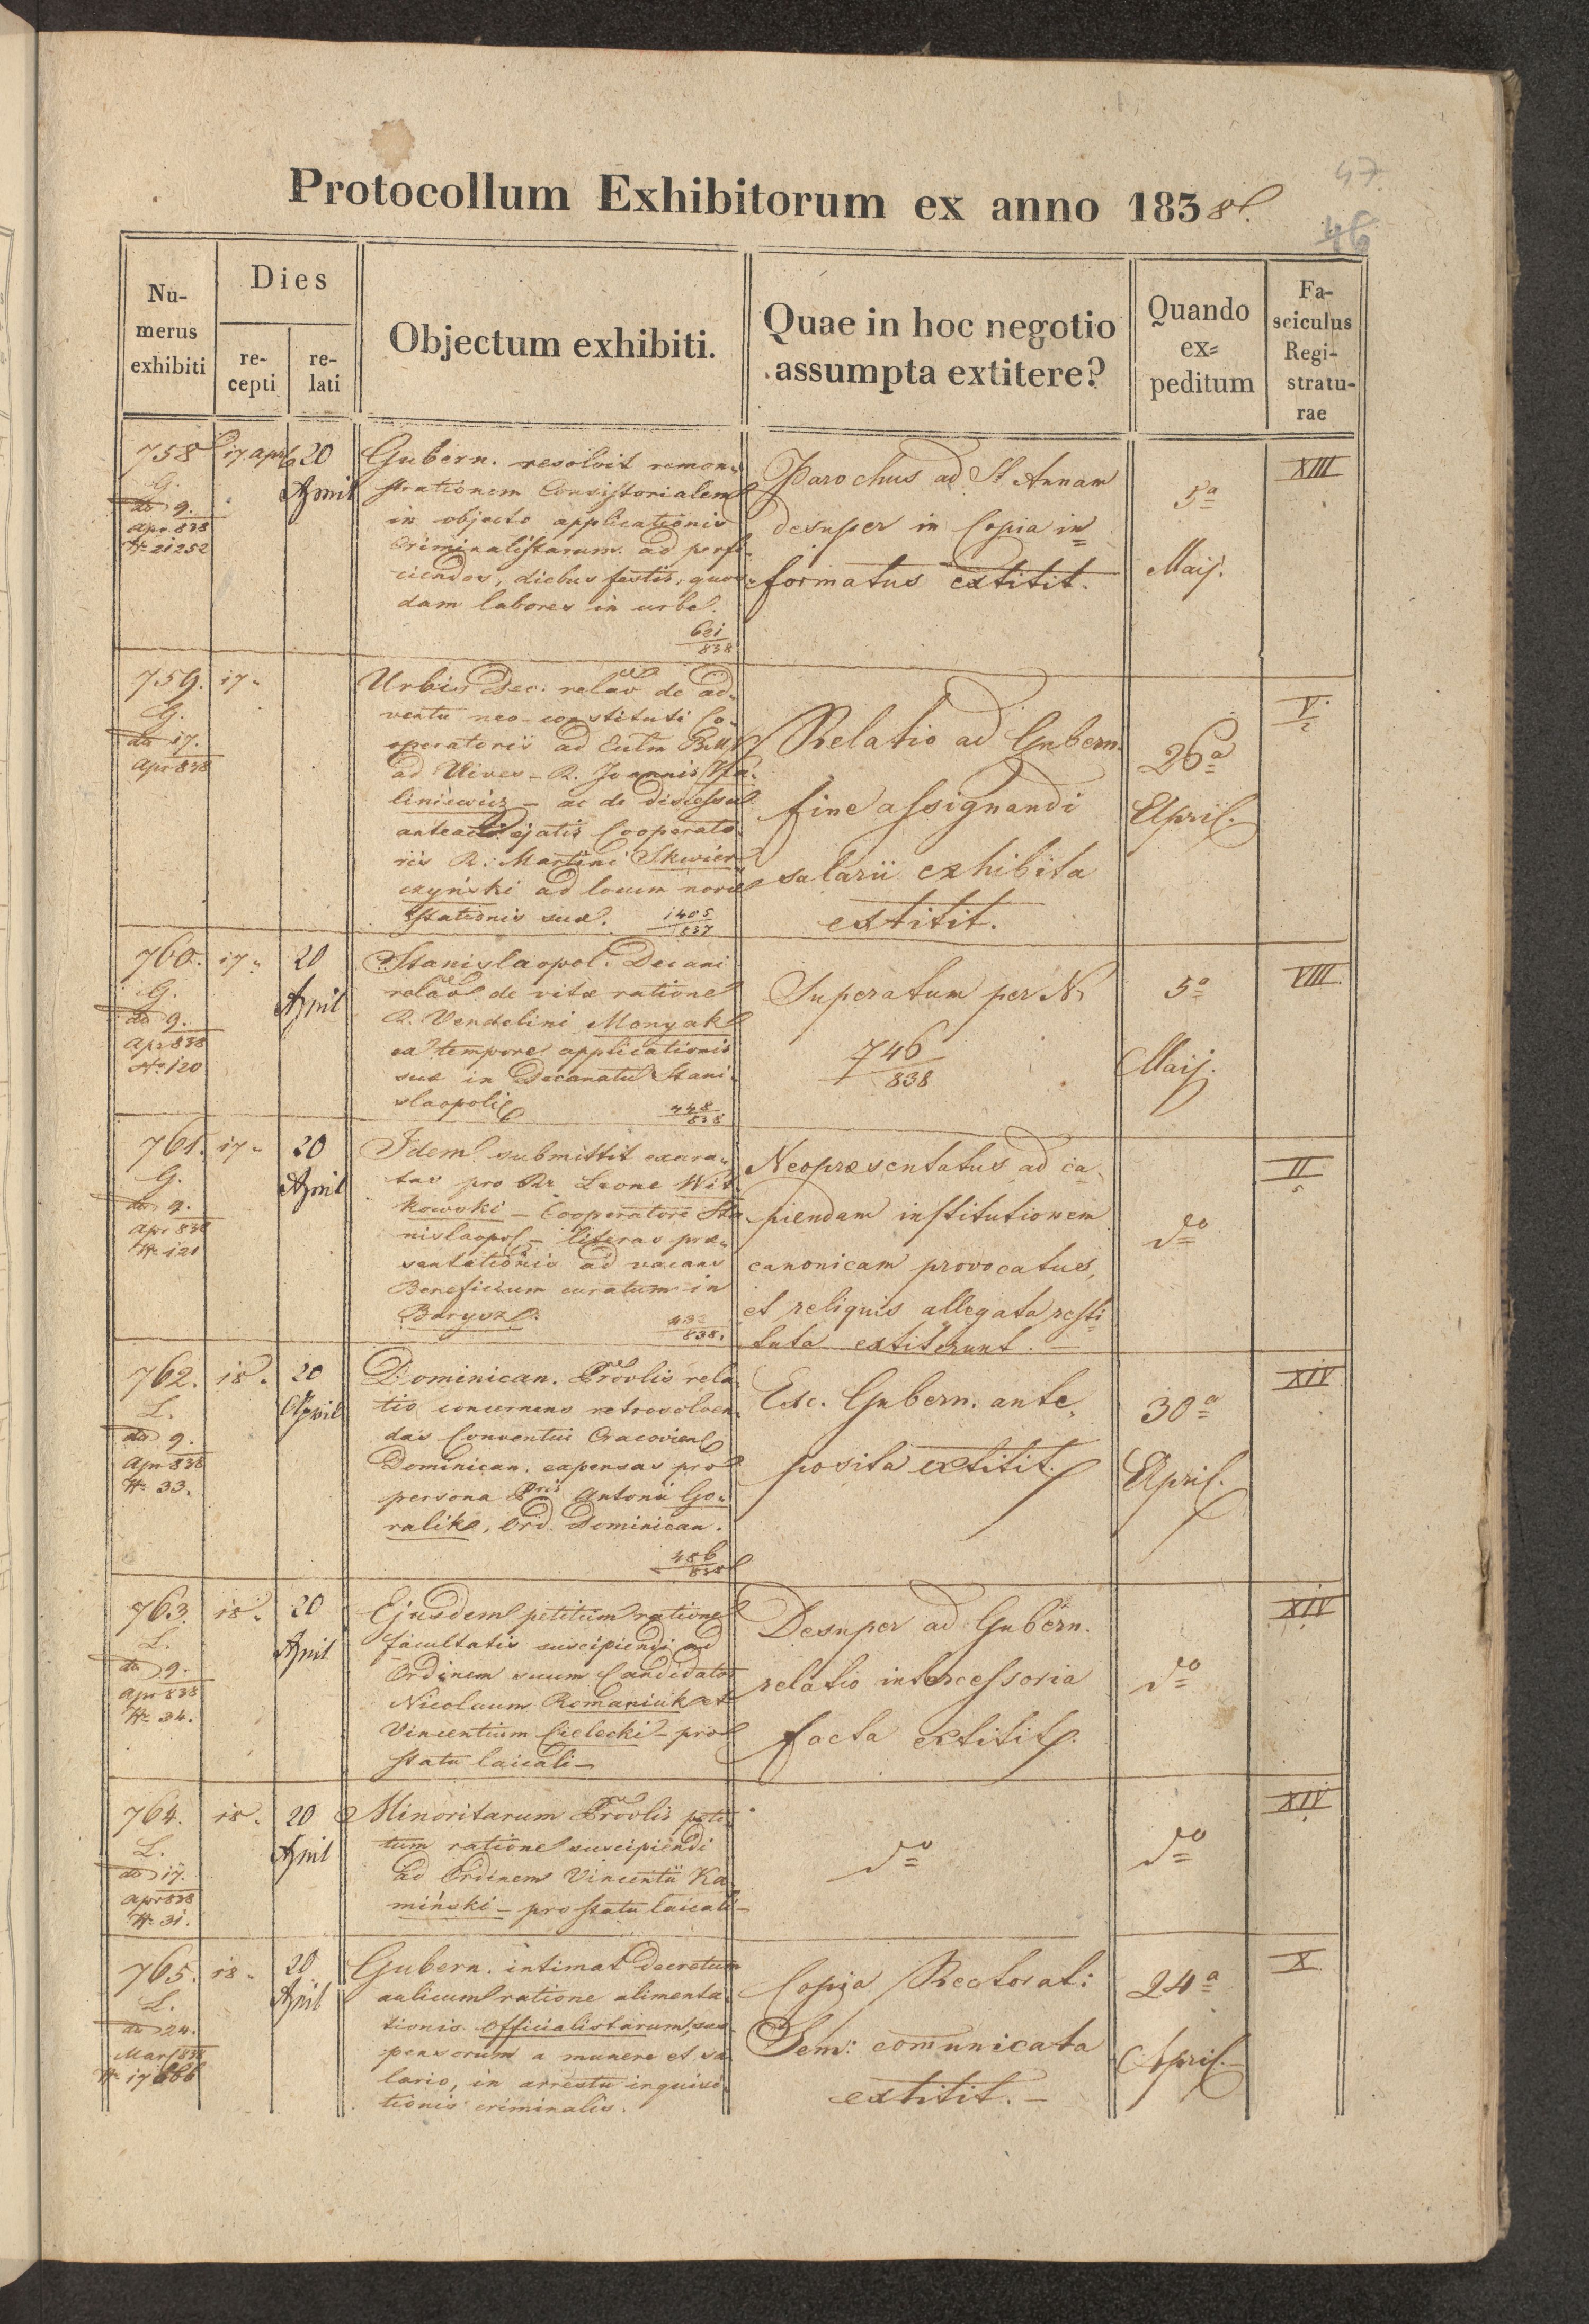 47.
46
Protocollum Exhibitorum ex anno 1838.
Nu-
merus
exhibiti
Dies
re-
cepti
re-
lati
Objectum exhibiti.
Quae in hoc negotio
assumpta extitere?
Quando
ex=
peditum
Fa-
sciculus
Regi-
stratu-
rae
758
G.
do 9.
Apr 838
No 21252
17 apr
20
April
Gubern. resolvit remon-
strationem Consistorialem
in objecto applicationis
Criminalistarum ad perfi-
ciendos, diebus festis, quos-
dam labores in urbe.
621
838
Parochus ad St Annam
desuper in Copia in=
formatus extitit.
5a
Maij.
XIII
759.
G.
do 17.
Apr 838
17.
Urbis Dec. relao de ad-
ventu neo-constituti Co-
operatoris ad Eccl.
ad Nives - R. Joannis
liniewicz - ac de discessu
anteacti ejatis Cooperato-
ris R. Martini Skwier-
czyński ad locum novae
Stationis suae.
1405
837
Relatio ad Gubern.
fine assignandi
salarii exhibita
extitit.
26a
April.
V.
2
760.
G.
do 9.
Apr 838
No 120
17.
20
April
Stanislaopol. Decani
relao de vitae ratione
R. Vendelini Monyak
ea tempore applicationis
suae in Decanatu Stani-
slaopoli
448
838
Superatum per N.
746
838
5a
Maij.
VIII.
761.
G.
do 9.
Apr 838
No 121
17.
20
April
Idem submittit exara-
tas pro Rr Leone Wit-
kowski - Cooperatore Sta-
nislaopol - literas prae-
sentationis ad vacans
Beneficium curatum in
Barysz.
432
838.
Neopraesentatus ad ca-
piendam institutionem
canonicam provocatus,
et reliquis allegata resti-
tuta extiterunt. -
do
II
5
762.
L.
do 9.
Apr 838
No 33.
18.
20
April
Dominican. Provlis rela-
tio concernens retrosolven-
das Conventui Cracovien
Dominican. expensas pro
persona Pris Antonii Go-
ralik, Ord. Dominican.
486
838
Exc. Gubern. ante-
posita extitit.
30a
April.
XIV
763.
L.
do 9.
Apr 838
No 34.
18.
20
April
Ejusdem petitum ratione
facultatis suscipiendi ad
Ordinem suum Candidatos
Nicolaum Romaniuk et
Vincentium Cielecki - pro
statu laicali -
Desuper ad Gubern.
relatio intercessoria
facta extitit.
do
XIV
764.
L.
do 17.
Apr 838
No 31.
18.
20
April
Minoritarum Provlis peti-
tum ratione suscipiendi
ad Ordinem Vincentii Ka-
miński - pro statu laicali -
do
do
XIV
765.
L.
do 24.
Mar 838
No 17666
18.
20
April
Gubern. intimat Decretum
aulicum ratione alimenta-
tionis Officialistarum, sus-
pensorum a munere et sa-
lario, in arrestu inquisi-
tionis criminalis.
Copia Rectorat:
Sem: comunicata
extitit. -
24a
April. -
X